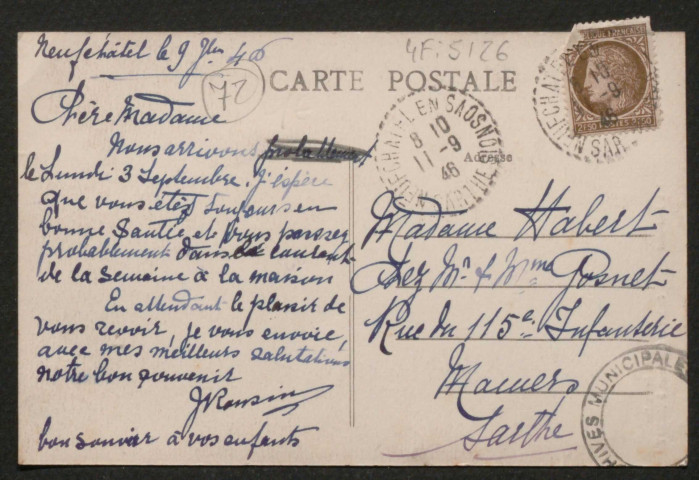 Neufchâtel le 9 7bre 46
4Fi 5126
72
CARTE POSTALE
Chère Madame
Nous arrivons
le Lundi 3 Septembre. J'espère
que vous êtes toujours en
bonne Santé et vous passez
probablement dans le courant
de la semaine à la maison
En attendant le plaisir de
vous revoir, je vous envoie,
avec mes meilleurs salutations
notre bon souvenir
bon souvenir à vos enfants
Adresse
Madame Habert
Chez Mr & Mme Posnet
Rue du 115e Infanterie
Mamers
Sarthe
NEUFCHATEL EN SAOSNOIS
8 10
11 -9
46
SARTHE
NEUFCHATEL
10
-9
46
SAR
ARCHIVES MUNICIPALES